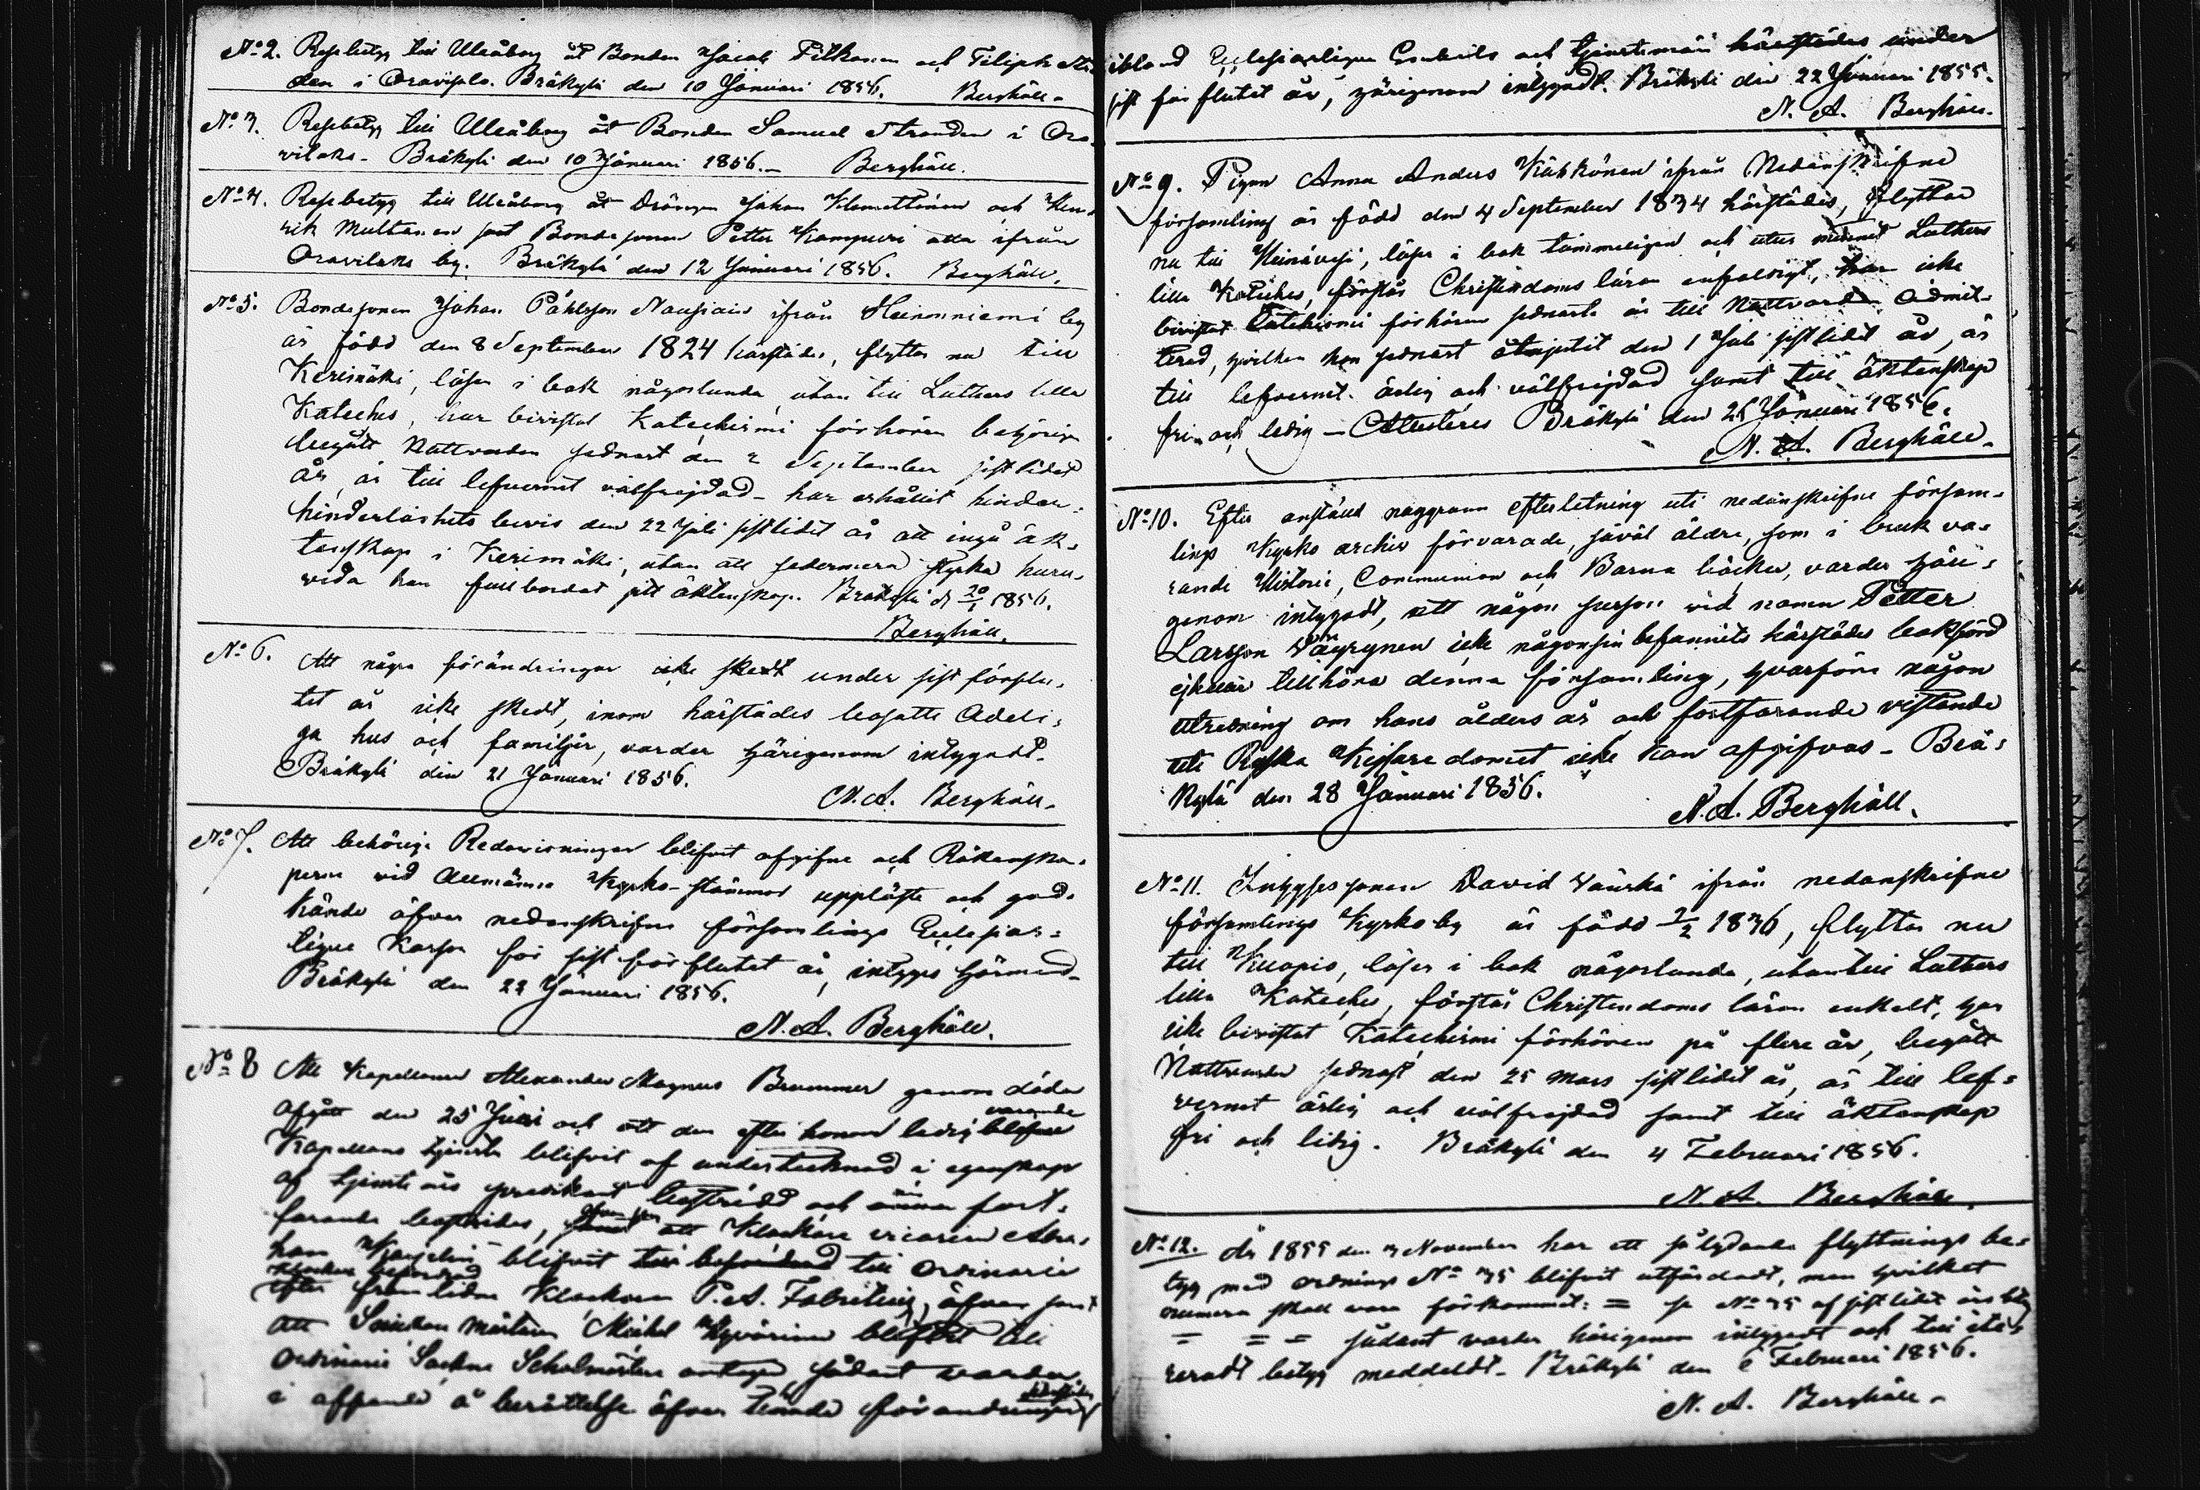 No 2. Respbetyg till Uleåborg åt Bonden Jacob Pitkonen och Filip
den i Oravisalo. Bräkylä den 10 Januari 1856. Berghäll.
No 3. Respbetyg till Uleåborg åt Bonden Samuel Stranden i Ora-
vilaks. Bräkylä den 10 Januari 1856. Berghäll.
No 4. Respbetyg till Uleåborg åt Drängen Johan Klemettinen och Hen-
rik Multanen samt Bondesonen Petter Kampuri alla ifrån
Oravilaks by. Bräkylä den 12 Januari 1856. Berghäll.
No 5. Bondesonen Johan Påhlsson Nousiain ifrån Heinoniemi by
är född den 8 September 1824 härstädes, flyttar nu till
Kerimäki, läser i bok någorlunda, utan till Luthers lilla
Kateches, har bevistat Katechismi förhören behörigen
begått Nattvarden sednast den 2 September sistlidet
år, är till lefvernet välfrejdad - har erhållit hinder-
hinderlöshets bevis den 22 Juli sistlidet år att ingå äk-
tenskap i Kerimäki, utan att sedermera styrka huru-
vida han fullbordat sitt äktenskap. Bräkylä d 20/1 1856.
Berghäll.
No 6. Att några förändringar icke skedt under sist förflu-
tet år icke skedt, inom härstädes bosatte Adeli-
ga hus och familjer, varder härigenom intygadt.
Bräkylä den 21 Januari 1856.
N. A. Berghäll.
No 7. Att behörige Redovisningar blifvit afgifne och Räkenska-
perne vid Allmänna Kyrko-stämmor uppläste och god-
kände öfver nedanskrifne församlings Ecclesias-
ligue Kassor för sist förflutet år, intygas härmed
Bräkylä den 22 Januari 1856.
N. A. Berghäll.
No 8 Att Kapellanen Alexander Magnus Brummer genom döden
afgått den 25 Juni och att den efter honom ledig varande blifne
Kapellans tjensten blifvit af undertecknad i egenskap
af tjensteårs predikant bestridd och ännu fort-
farande bestrides, att Klockare vicarien Abra-
ham blifvit till befordrad till Ordinarie
Klockare befordrad
efter framlidne Klockaren P. A. Fabritius, äfven samt
att Socken mästaren Michel Hyvärinen blifvit till
Ordinarie Sockne Scholmästare antagen, sådant varder
i afseende å berättelse öfver timade förändringar
ibland Ecclesiasligue Embets och tjenstemän härstädes under
sist förflutet år, härigenom intygadt. Bräkylä den 22 Januari 1855.
N. A. Berghäll.
No 9. Pigan Anna Anders Kähkönen ifrån Nedanskrifne
församling är född den 4 September 1834 härstädes, flyttar
nu till Heinävesi, läser i bok tämmeligen och utur minnet Luthers
lilla Kateches, förstår Christendoms läran enfaldigt, har icke
bevistat Katekismi förhören sednast är till Nattvarden Admit-
terad, hvilken hon sednast åtnjutit den 1 Juli sistlidet år, är
till lefvernet ärlig och välfrejdad samt till äktenskap
fri och ledig - Attesteres Bräkylä den 26 Januari 1856.
N. A. Berghäll.
No 10. Efter anstäld noggrann efterletning uti nedanskrifne försam-
lings Kyrko archiv förvarade, såväl äldre, som i bruk va-
rande Historie, Communion och Barna böcker, varder häri-
genom intygadt, att någon person vid namn Petter
Larsson Väyrynen icke någonsin befunnits härstädes bokförd
ejheller tillhöra denna församling, hvarföre någon
utredning om hans ålders år och fortfarande vistande
uti Ryska Kejsaredömet icke kan afgifvas - Brä-
kylä den 28 Januari 1856.
N. A. Berghäll.
No 11. Inhysesonen David Väiskä ifrån nedanskrifne
församlings Kyrkoby är född 2/2 1836, flyttar nu
till Kuopio, läser i bok någorlunda, utantill Luthers
lilla Kateches, förstår Christendoms läran enkelt, har
icke bevistat Katechismi förhören på flere år, begått
Nattvarden sednast den 25 Mars sistlidet år, är till lef-
vernet ärlig och välfrejdad samt till äktenskap
fri och ledig. Bräkylä den 4 Februari 1856.
N. A. Berghäll.
No 12. År 1855 den 3 November har ett så lydande flyttnings be-
tyg med ordnings No 35 blifvit utfärdadt, men hvilket
numera skall vara förkommit: = se No 35 af sistlidet års
= = = sådant varder härigenom intygadt och till
reradt betyg meddeldt. Bräkylä den 6 Februari 1856.
N. A. Berghäll.